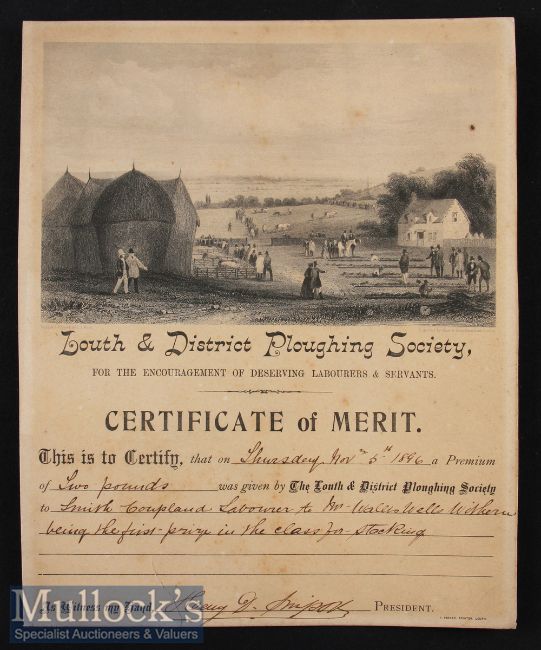 Louth & District Ploughing Society,
FOR THE ENCOURAGEMENT OF DESERVING LABOURERS & SERVANTS.
CERTIFICATE of MERIT.
This is to Certify, that on Thursday Novr 5th 1896 a Premium
of Two pounds was given by The Louth & District Ploughing Society
to Smith Coupland Labourer to Mr Wells Withern
being the first prize in the class for stacking
As Witness my Hand, Henry D. PRESIDENT.
Mullock's
Specialist Auctioneers & Valuers
PRINTER, LOUTH